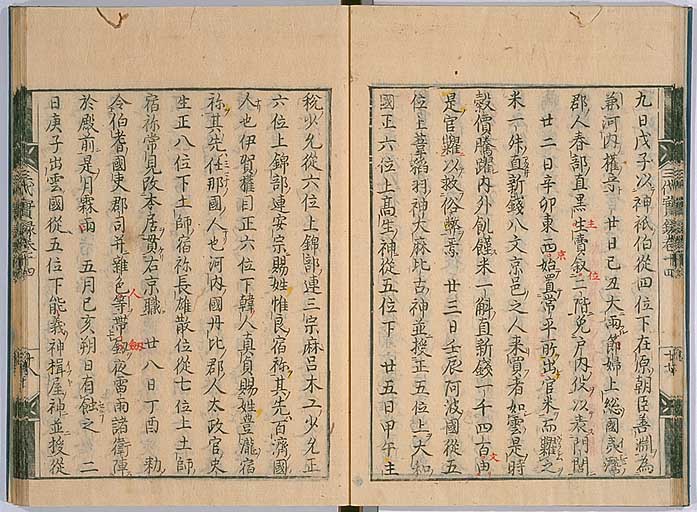 九日戊子以神祇伯從四位下在原朝臣善淵為
兼河内權守 廿日己丑大雨節婦上総國夷灊
郡人春部直黒主賣叙位二階免戸内役以表門閭
廿二日辛卯東西京始置常平所出官米而糶之
米一升直新錢八文京邑之人来買者如雲是時
穀價騰躍内外飢饉米一斛直新錢一千四百文由
是官糶以救俗弊焉 廿三日壬辰阿波國從五
位上葦稻羽神大麻比古神並授正五位上大和
國正六位上高生神從五位下 廿五日甲午主
税少允從六位上錦部連三宗麻呂木工少允正
六位上錦部連安宗賜姓惟良宿祢其先百濟國
人也伊賀權目正六位下韓人真貞賜姓豊瀧宿
祢其先任那國人也河内國丹比郡人太政官史
生正八位下土師宿祢長雄散位從七位上土師
宿祢常見改本居貫右京職 廿八日丁酉 勅
令伯耆國史郡司并雜色人等帶劔夜雷雨諸衛陣
於廳前是月霖雨 五月己亥朔日有蝕之 二
日庚子出雲國從五位下能義神楫屋神並授從
三代實録巻十四
三代實録巻十四